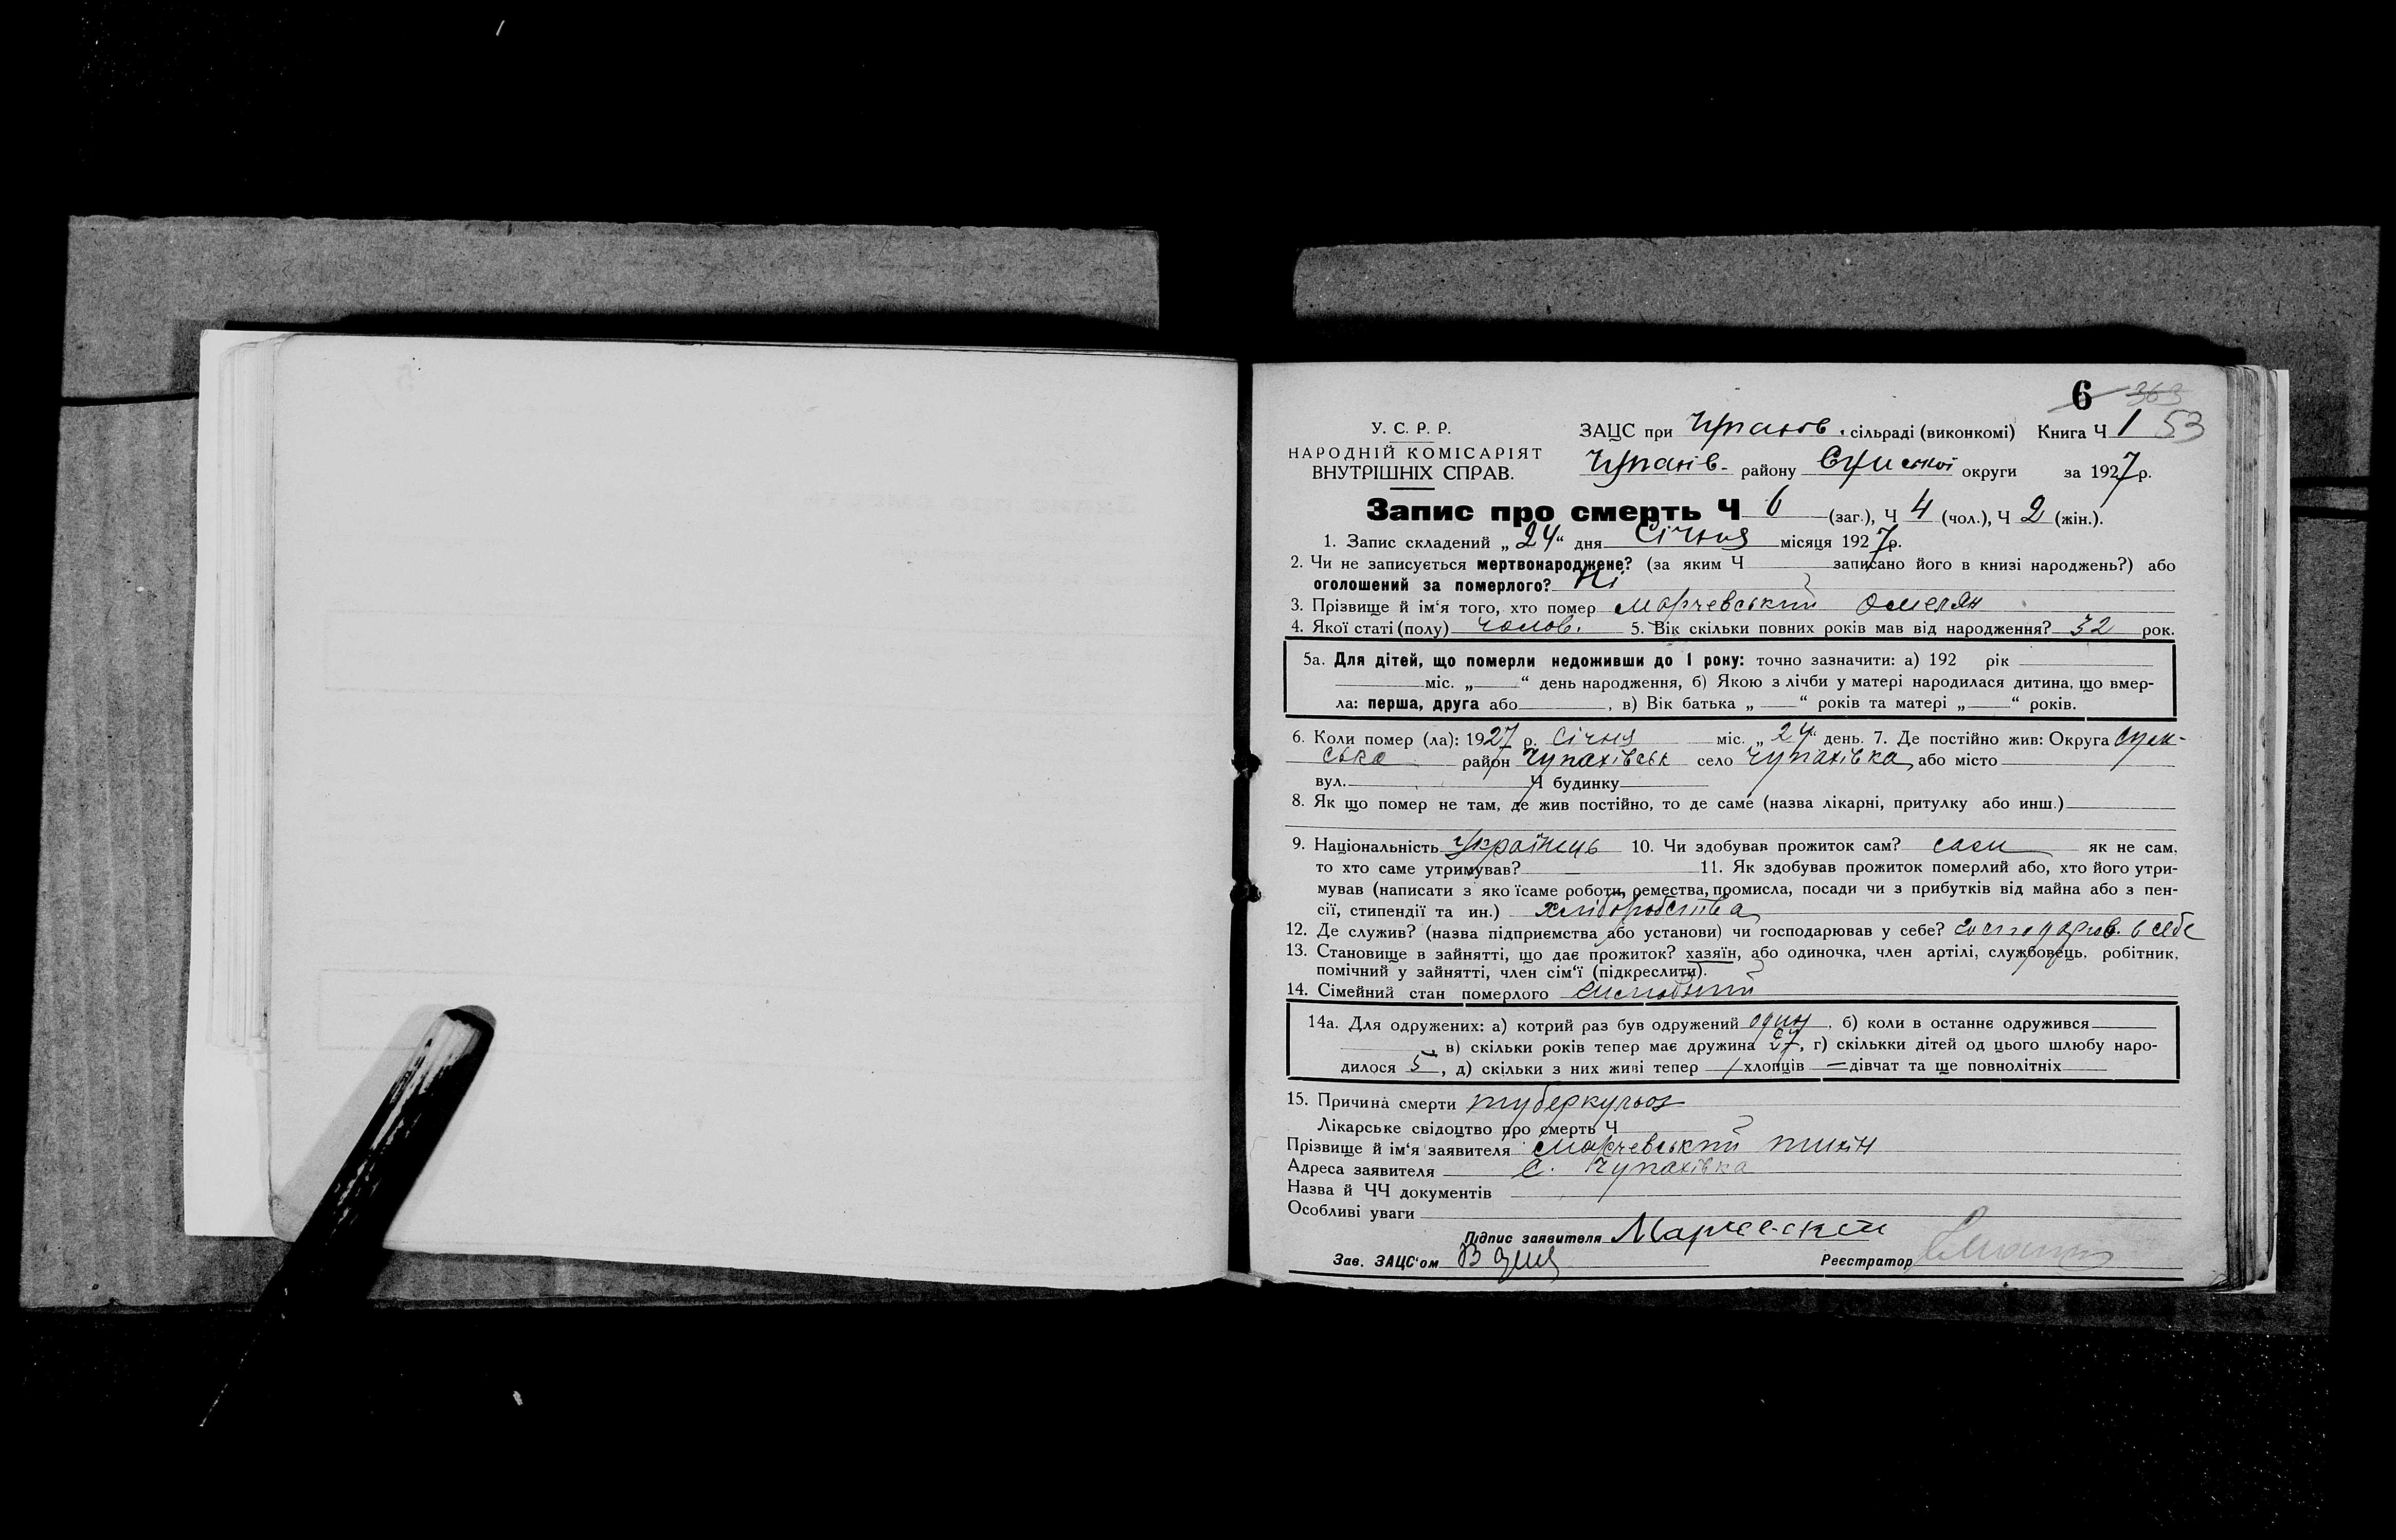 6 363
У. С. Р. Р. ЗАЦС при Чупахов. сільраді (виконкомі) Книга Ч 1 53
НАРОДНІЙ КОМІСАРІЯТ
ВНУТРІШНІХ СПРАВ. Чупахів- району Сумської округи за 1927 р.
Запис про смерть Ч 6 (заг.), Ч 4 (чол.), Ч 2 (жін.).
1. Запис складений „ 24 “ дня Січня місяця 1927 р.
2. Чи не записується мертвонароджене? (за яким Ч записано його в книзі народжень?) або
оголошений за померлого? Ні
3. Прізвище й ім‘я того, хто помер Марчевський Омелян
4. Якої статі (полу) чолов. 5. Вік скільки повних років мав від народження? 32 рок.
5а. Для дітей, що померли недоживши до І року: точно зазначити: а) 192 рік
міс. „ “ день народження, б) Якою з лічби у матері народилася дитина, що вмер-
ла: перша, друга або , в) Вік батька „ “ років та матері „ “ років.
6. Коли помер (ла): 1927 р. Січня міс. „ 24 “ день. 7. Де постійно жив: Округа Сум-
ська район Чупахівськ село Чупахівка, або місто
вул. Ч будинку
8. Як що помер не там, де жив постійно, то де саме (назва лікарні, притулку або инш.)
9. Національність Українець 10. Чи здобував прожиток сам? сам як не сам,
то хто саме утримував? 11. Як здобував прожиток померлий або, хто його утри-
мував (написати з яко їсаме роботи, ремества, промисла, посади чи з прибутків від майна або з пен-
сії, стипендії та ин.) хліборобства
12. Де служив? (назва підприємства або установи) чи господарював у себе? господарюв. в себе
13. Становище в зайнятті, що дає прожиток? хазяїн, або одиночка, член артілі, службовець, робітник,
помічний у зайнятті, член сім‘ї (підкреслити).
14. Сімейний стан померлого
14а. Для одружених: а) котрий раз був одружений один, б) коли в останнє одружився
в) скільки років тепер має дружина 27, г) скількки дітей од цього шлюбу наро-
дилося 5, д) скільки з них живі тепер / хлопців — дівчат та ще повнолітніх
15. Причина смерти туберкульоз
Лікарське свідоцтво про смерть Ч
Прізвище й ім‘я заявителя Марчевський Тихін
Адреса заявителя С. Чупахівка
Назва й ЧЧ документів
Особливі уваги
Підпис заявителя
Зав. ЗАЦС‘ом Реєстратор